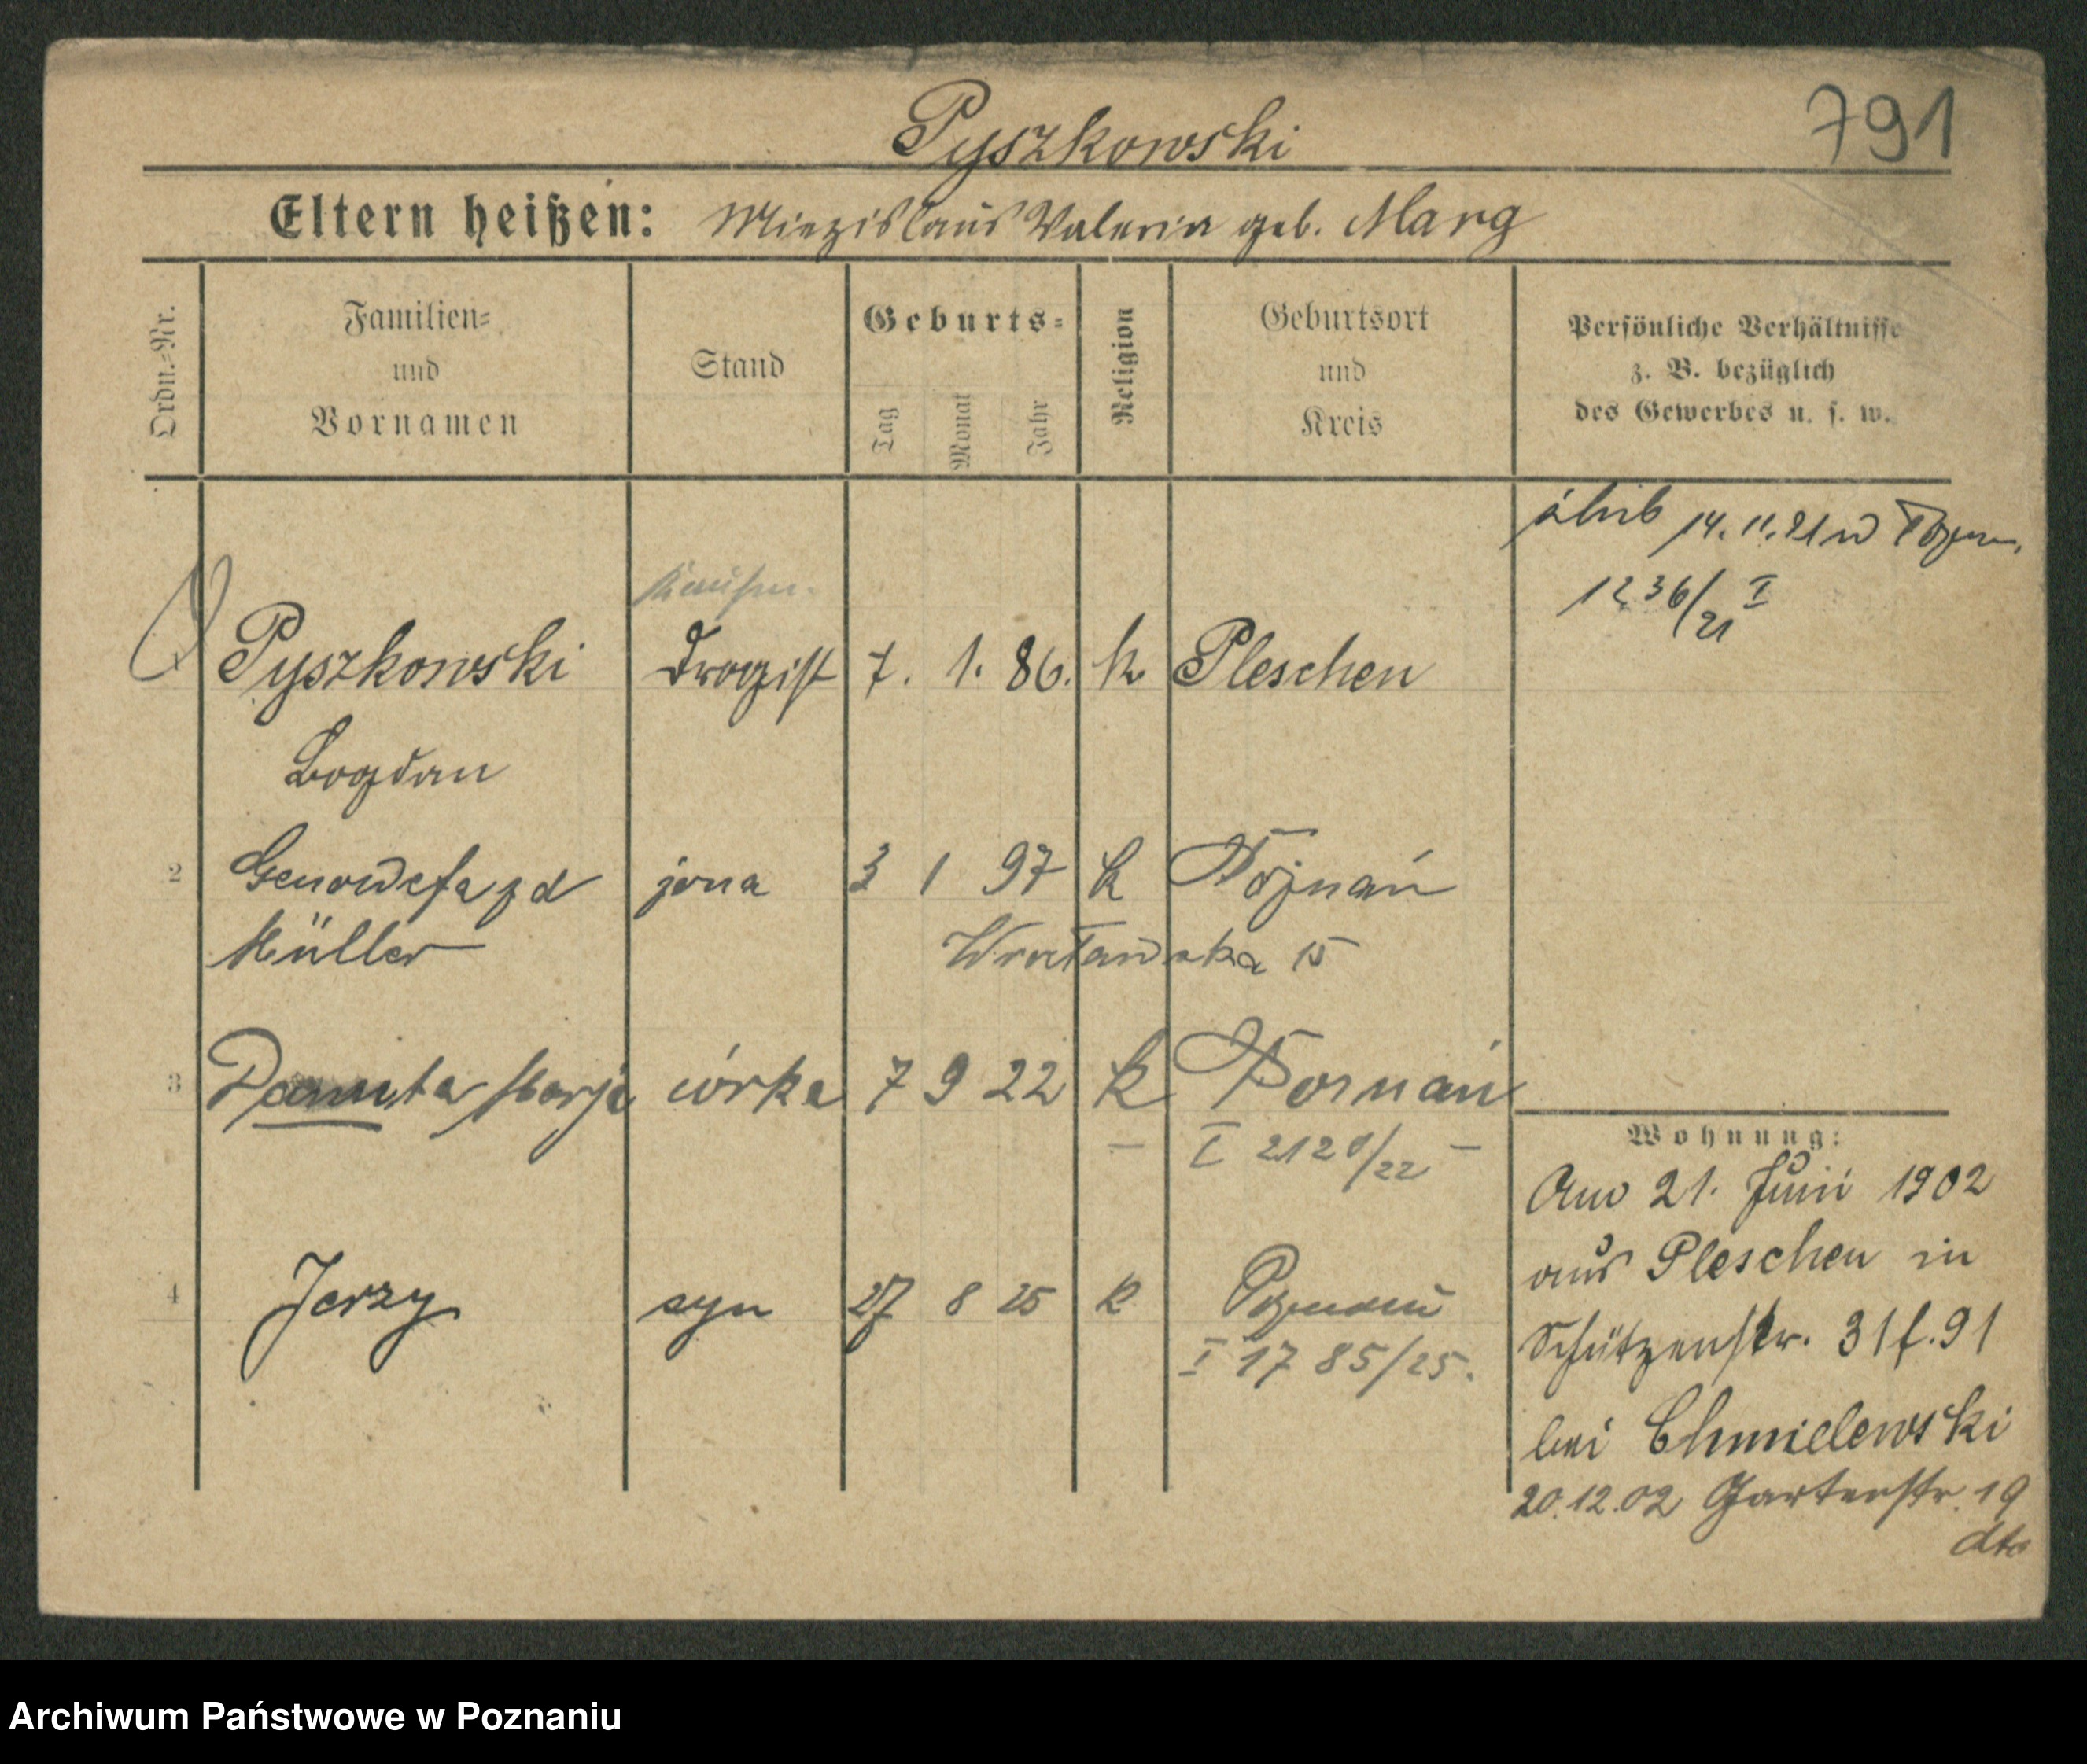 Pyszkowski
791
Eltern heißen: Miezislaus Valeria geb. Marg
Ordn.=Nr.
Familien=
und
Vornamen
Stand
Geburts=
Tag
Monat
Jahr
Religion
Geburtsort
und
Kreis
Persönliche Verhältnisse
z. B. bezüglich
des Gewerbes u. s. w.
ślub 14. 11. 21 w Pozn.
1236/21 I
Pyszkowski Drogist 7. 1. 86. k Pleschen
Bogdan
2 Genowefa z d żona 3 1 97 k Poznań
Müller Wrocławska 15
3 Danuta Marja córka 7 9 22 k Poznań
I 2120/22
4 Jerzy syn 27 8 25 k Poznań
I 1785/25.
Wohnung:
Am 21. Juni 1902
aus Pleschen in
Schützenstr. 31 f. 91
bei Chmielewski
20.12.02 Gartenstr. 19
dto
Archiwum Państwowe w Poznaniu